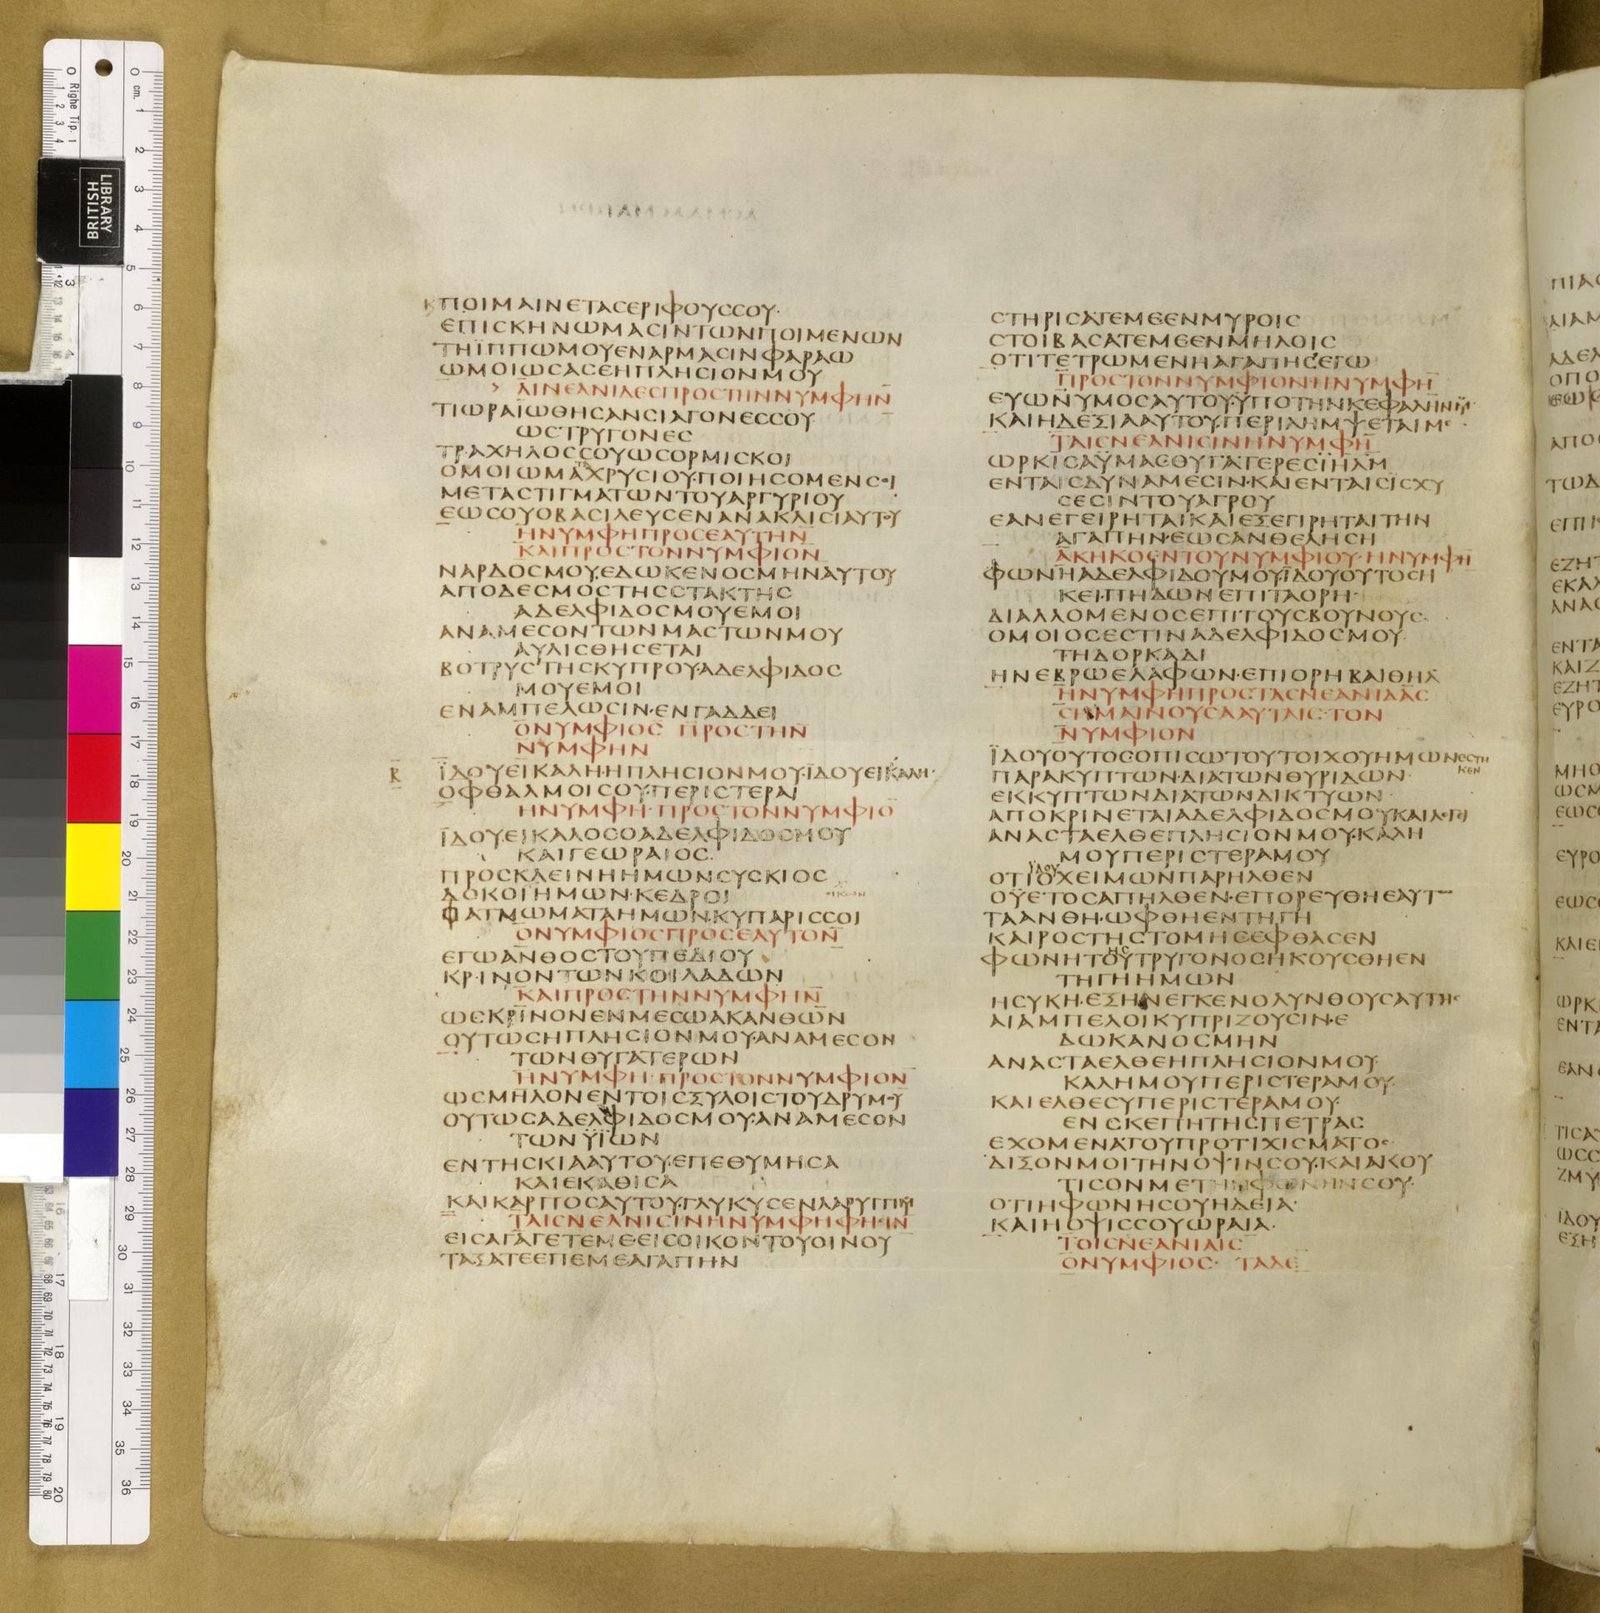 ΚΠΟΙΜΑΙΝΕΤΑCΕΡΙΦΟΥCCΟΥ·
ΕΠΙCΚΗΝΩΜΑCΙΝΤΩΝΠΟΙΜΕΝΩΝ
ΤΗΪΠΠΩΜΟΥΕΝΑΡΜΑCΙΝΦΑΡΑΩ
ΩΜΟΙΩCΑCΕΗΠΛΗCΙΟΝΜΟΥ
ΑΙΝΕΑΝΙΔΕCΠΡΟCΤΗΝΝΥΜΦΗΝ
ΤΙΩΡΑΙΩΘΗCΑΝCΙΑΓΟΝΕCCΟΥ·
ΩCΤΡΥΓΟΝΕC
ΤΡΑΧΗΛΟCCΟΥΩCΟΡΜΙCΚΟΙ
ΟΜΟΙΩΜΑΧΡΥCΙΟΥ·ΠΟΙΗCΟΜΕΝCΟΙ
ΜΕΤΑCΤΙΓΜΑΤΩΝΤΟΥΑΡΓΥΡΙΟΥ
ΕΩCΟΥΟΒΑCΙΛΕΥCΕΝΑΝΑΚΛΙCΙΑΥΤΟΥ
ΗΝΥΜΦΗΠΡΟCΕΑΥΤΗΝ
ΚΑΙΠΡΟCΤΟΝΝΥΜΦΙΟΝ
ΝΑΡΔΟCΜΟΥ·ΕΔΩΚΕΝΟCΜΗΝΑΥΤΟΥ
ΑΠΟΔΕCΜΟCΤΗCCΤΑΚΤΗC
ΑΔΕΛΦΙΔΟCΜΟΥΕΜΟΙ
ΑΝΑΜΕCΟΝΤΩΝΜΑCΤΩΝΜΟΥ
ΑΥΛΙCΘΗCΕΤΑΙ
ΒΟΤΡΥCΤΗCΚΥΠΡΟΥ·ΑΔΕΛΦΙΔΟC
ΜΟΥΕΜΟΙ
ΕΝΑΜΠΕΛΩCΙΝ·ΕΝΓΑΔΔΕΙ
ΟΝΥΜΦΙΟC ΠΡΟCΤΗΝ
ΝΥΜΦΗΝ
Β ΪΔΟΥΕΙΚΑΛΗ·ΗΠΛΗCΙΟΝΜΟΥ·ΪΔΟΥΕΙΚΑΛΗ·
ΟΦΘΑΛΜΟΙCΟΥ·ΠΕΡΙCΤΕΡΑΙ
ΗΝΥΜΦΗ·ΠΡΟCΤΟΝΝΥΜΦΙΟ
ΪΔΟΥ·ΕΙΚΑΛΟCΟΑΔΕΛΦΙΔΟCΜΟΥ
ΚΑΙΓΕΩΡΑΙΟC·
ΠΡΟCΚΛΕΙΝΗΗΜΩΝCΥCΚΙΟC
ΔΟΚΟΙΗΜΩΝ·ΚΕΔΡΟΙ
ΦΑΤΝΩΜΑΤΑΗΜΩΝ·ΚΥΠΑΡΙCCΟΙ
ΟΝΥΜΦΙΟCΠΡΟCΕΑΥΤΟΝ
ΕΓΩΑΝΘΟCΤΟΥΠΕΔΙΟΥ
ΚΡΙΝΟΝΤΩΝΚΟΙΛΑΔΩΝ
ΚΑΙΠΡΟCΤΗΝΝΥΜΦΗΝ
ΩCΚΡΙΝΟΝΕΝΜΕCΩΑΚΑΝΘΩΝ
ΟΥΤΩCΗΠΛΗCΙΟΝΜΟΥ·ΑΝΑΜΕCΟΝ
ΤΩΝΘΥΓΑΤΕΡΩΝ
ΗΝΥΜΦΗ·ΠΡΟCΤΟΝΝΥΜΦΙΟΝ
ΩCΜΗΛΟΝΕΝΤΟΙCΞΥΛΟΙCΤΟΥΔΡΥΜΟΥ
ΟΥΤΩCΑΔΕΛΦΙΔΟCΜΟΥ·ΑΝΑΜΕCΟΝ
ΤΩΝΫΪΩΝ
ΕΝΤΗCΚΙΑΑΥΤΟΥ·ΕΠΕΘΥΜΗCΑ
ΚΑΙΕΚΑΘΙCΑ
ΚΑΙΚΑΡΠΟCΑΥΤΟΥ·ΓΛΥΚΥCΕΝΛΑΡΥΓΓΙΜΟΥ
ΤΑΙCΝΕΑΝΙCΙΝΗΝΥΜΦΗΦΗCΙΝ
ΕΙCΑΓΑΓΕΤΕΜΕΕΙCΟΙΚΟΝΤΟΥΟΙΝΟΥ
ΤΑΞΑΤΕΕΠΕΜΕΑΓΑΠΗΝ
CΤΗΡΙCΑΤΕΜΕΕΝΜΥΡΟΙC
CΤΟΙΒΑCΑΤΕΜΕΕΝΜΗΛΟΙC
ΟΤΙΤΕΤΡΩΜΕΝΗΑΓΑΠΗCΕΓΩ
ΠΡΟCΤΟΝΝΥΜΦΙΟΝΗΝΥΜΦΗ
ΕΥΩΝΥΜΟCΑΥΤΟΥ·ΥΠΟΤΗΝΚΕΦΑΛΗΝΜΟΥ
ΚΑΙΗΔΕΞΙΑΑΥΤΟΥ·ΠΕΡΙΛΗΜΨΕΤΑΙΜΕ
ΤΑΙCΝΕΑΝΙCΙΝΗΝΥΜΦΗ
ΩΡΚΙCΑΫΜΑCΘΥΓΑΤΕΡΕCΪΗΛΜ
ΕΝΤΑΙCΔΥΝΑΜΕCΙΝ·ΚΑΙΕΝΤΑΙCΪCΧΥ
CΕCΙΝΤΟΥΑΓΡΟΥ
ΕΑΝΕΓΕΙΡΗΤΑΙΚΑΙΕΞΕΓΙΡΗΤΑΙΤΗΝ
ΑΓΑΠΗΝ·ΕΩCΑΝΘΕΛΗCΗ
ΑΚΗΚΟΕΝΤΟΥΝΥΜΦΙΟΥ·ΗΝΥΜΦΗ
ΦΩΝΗΑΔΕΛΦΙΔΟΥΜΟΥ·ΪΔΟΥΟΥΤΟCΗ
ΚΕΙ·ΠΗΔΩΝΕΠΙΤΑΟΡΗ·
ΔΙΑΛΛΟΜΕΝΟCΕΠΙΤΟΥCΒΟΥΝΟΥC·
ΟΜΟΙΟCΕCΤΙΝΑΔΕΛΦΙΔΟCΜΟΥ·
ΤΗΔΟΡΚΑΔΙ
ΗΝΕΒΡΩΕΛΑΦΩΝ·ΕΠΙΟΡΗΒΑΙΘΗΛ
ΗΝΥΜΦΗΠΡΟCΤΑCΝΕΑΝΙΔΑC
CΗΜΑΙΝΟΥCΑΑΥΤΑΙC·ΤΟΝ
ΝΥΜΦΙΟΝ
ΪΔΟΥΟΥΤΟCΟΠΙCΩΤΟΥΤΟΙΧΟΥΗΜΩΝΕCΤΗ
ΚΕΝ
ΠΑΡΑΚΥΠΤΩΝ·ΔΙΑΤΩΝΘΥΡΙΔΩΝ·
ΕΚΚΥΠΤΩΝΔΙΑΤΩΝΔΙΚΤΥΩΝ·
ΑΠΟΚΡΙΝΕΤΑΙΑΔΕΛΦΙΔΟCΜΟΥΚΑΙΛΕΓΙ
ΑΝΑCΤΑΕΛΘΕΠΛΗCΙΟΝΜΟΥ·ΚΑΛΗ
ΜΟΥΠΕΡΙCΤΕΡΑΜΟΥ
ΪΔΟΥ
ΟΤΙΟΧΕΙΜΩΝΠΑΡΗΛΘΕΝ
ΟΥΕΤΟCΑΠΗΛΘΕΝ·ΕΠΟΡΕΥΘΗΕΑΥΤΩ
ΤΑΑΝΘΗ·ΩΦΘΗΕΝΤΗΓΗ
ΚΑΙΡΟCΤΗCΤΟΜΗCΕΦΘΑCΕΝ
ΦΩΝΗΤΟΥΤΡΥΓΟΝΟCΗΚΟΥCΘΗΕΝ
ΤΗΓΗΗΜΩΝ
ΗCΥΚΗ·ΕΞΗΝΕΓΚΕΝΟΛΥΝΘΟΥCΑΥΤΗC
ΑΙΑΜΠΕΛΟΙΚΥΠΡΙΖΟΥCΙΝ·Ε
ΔΩΚΑΝΟCΜΗΝ
ΑΝΑCΤΑΕΛΘΕΗΠΛΗCΙΟΝΜΟΥ·
ΚΑΛΗΜΟΥΠΕΡΙCΤΕΡΑΜΟΥ·
ΚΑΙΕΛΘΕCΥΠΕΡΙCΤΕΡΑΜΟΥ·
ΕΝCΚΕΠΗΤΗCΠΕΤΡΑC
ΕΧΟΜΕΝΑΤΟΥΠΡΟΤΙΧΙCΜΑΤΟC
ΔΙΞΟΝΜΟΙΤΗΝΟΨΙΝCΟΥ·ΚΑΙΑΚΟΥ
ΤΙCΟΝΜΕΤΗΝΦΩΝΗΝCΟΥ·
ΟΤΙΗΦΩΝΗCΟΥΗΔΕΙΑ·
ΚΑΙΗΟΨΙCCΟΥΩΡΑΙΑ·
ΤΟΙCΝΕΑΝΙΑΙC
ΟΝΥΜΦΙΟC· ΤΑΔΕ
BRITISH
LIBRARY